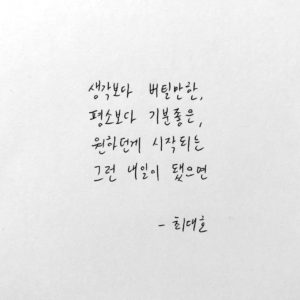 생각보다 버틸만한,
평소보다 기분좋은,
원하던게 시작되는
그런 내일이 됐으면
- 최대호